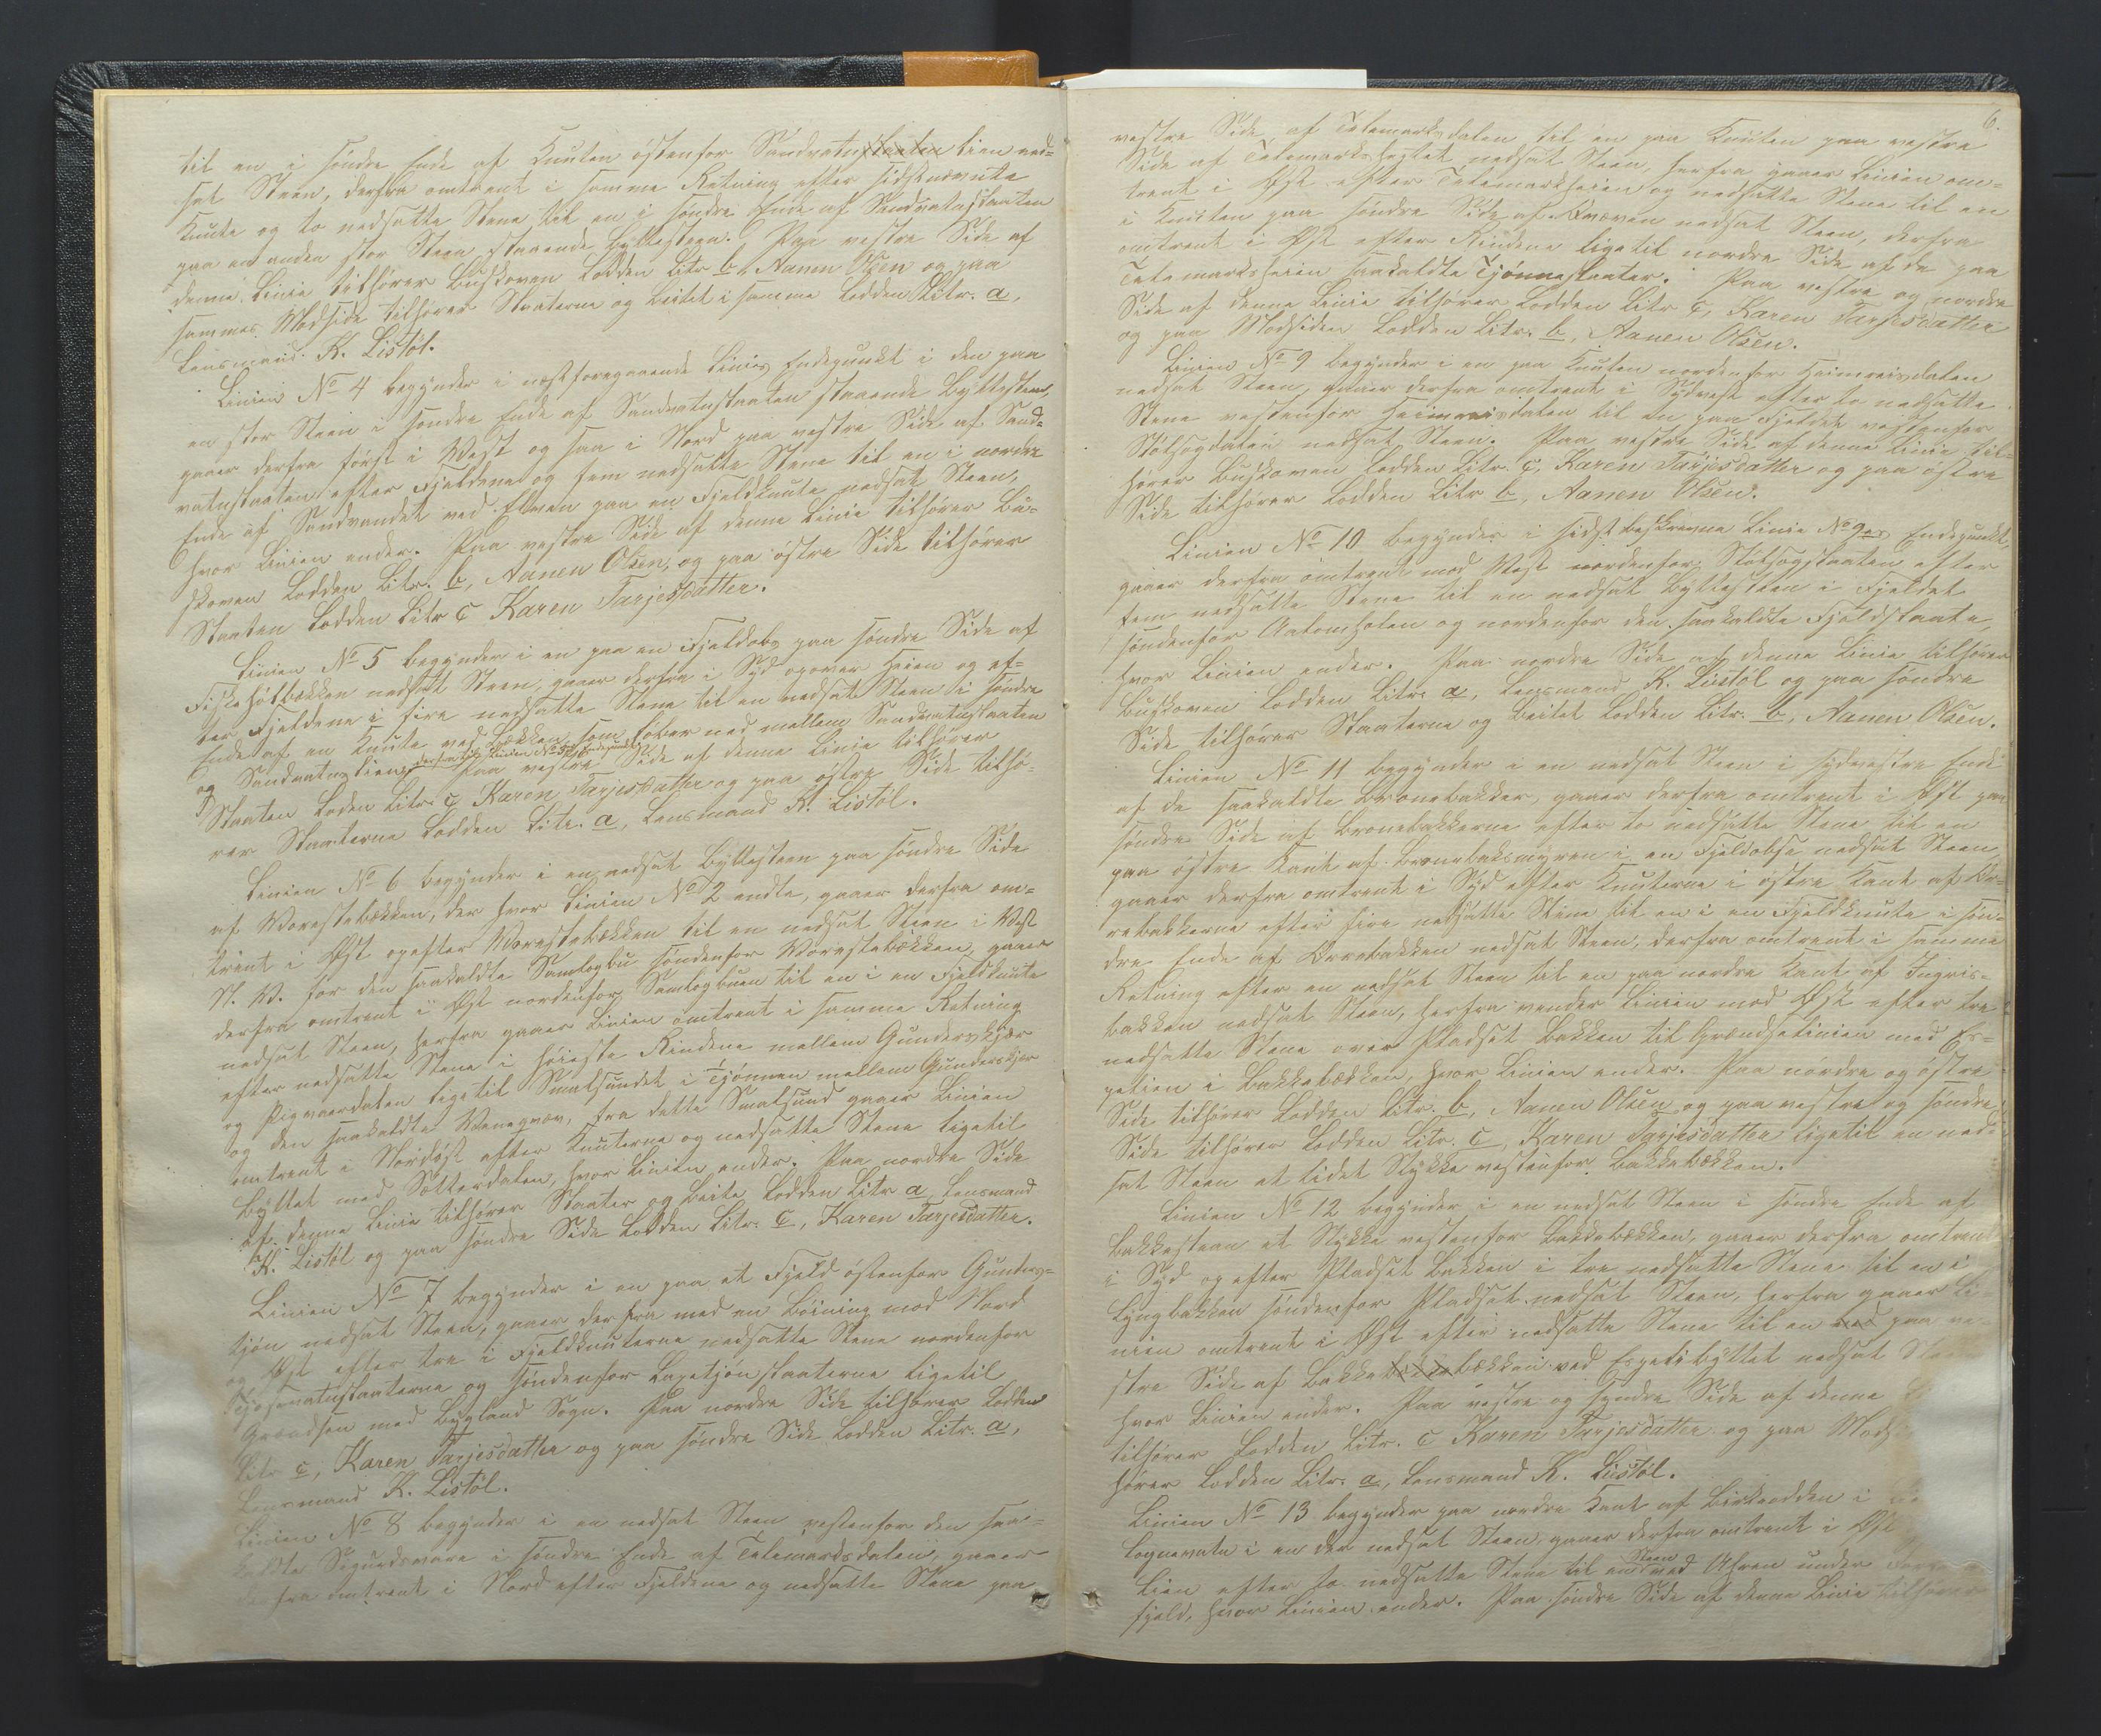 til en i søndre Ende af Knuten østenfor Sandvatnslien ned-
sat Steen, derfra omtrent i samme Retning efter sidstnævnte
Knute og to nedsatte Stene til en i søndre Ende af Sandvatnstaaten
paa en anden stor Steen staaende Byttesteen. Paa vestre Side af
denne Linie tilhører Buskoven Lodden Litr b, Aanen Olsen og paa
sammes Modside tilhører Staaterne og Beitet i samme Lodden Litr. a,
Lensmand K. Listøl.
Linien No 4 begynder i næstforegaaende Linies Endepunkt i den paa
en stor Steen i søndre Ende af Sandvatnstaaten staaende Byttesteen,
gaaer derfra først i Vest og saa i Nord paa vestre Side af Sand-
vatnstaaten efter Fjeldene og fem nedsatte Stene til en i nordre
Ende af Sandvandet ved Elven paa en Fjeldknute nedsat Steen,
hvor Linien ender. Paa vestre Side af denne Linie tilhører Bu-
skoven Lodden Litr. b, Aanen Olsen, og paa østre Side tilhører
Staaten Lodden Litr c Karen Tarjesdatter.
Linien No 5 begynder i en paa en Fjeldabs paa søndre Side af
Fiskehølbækken nedsat Steen, gaaer derfra i Syd opover Heien og ef-
ter Fjeldene i fire nedsatte Stene til en nedsat Steen i søndre
Ende af en Knute ved Bækken som løber ned mellem Sandvatnstaaten
og Sandvatnslien, derfra til Linien No 3 Endepunkt. Paa vestre Side af denne Linie tilhører
Staaten Loden Litr. c Karen Tarjesdatter og paa østre Side tilhø-
rer Staaterne Lodden Litr. a, Lensmand K. Listøl.
Linien No 6 begynder i en nedsat Byttesteen paa søndre Side
af Vorestebækken, der hvor Linien No 2 endte, gaaer derfra om-
trent i Øst opefter Vorestebækken til en nedsat Steen i Vest
N. V. for den saakaldte Samlagbu søndenfor Vorestebækken, gaaer
derfra omtrent i Øst nordenfor Samlagbuen til en i en Fjeldknute
nedsat Steen, herfra gaaer Linien omtrent i samme Retning
efter nedsatte Stene i høieste Rindene mellem Gunderskjær
og Pigvaardalen ligetil Smalsundet i Tjønnen mellem Gunderskjær
og den saakaldte Vaneqvæv, fra dette Smalsund gaaer Linien
omtrent i Nordøst efter Knuterne og nedsatte Stene ligetil
Byttet med Sætterdalen, hvor Linien ender. Paa nordre Side
af denne Linie tilhører Staater og Beite Lodden Litr a, Lensmand
K. Listøl og paa søndre Side Lodden Litr. c, Karen Tarjesdatter.
Linien No 7 begynder i en paa et Fjeld østenfor Gunders-
tjøn nedsat Steen, gaaer derfra med en Bøining mod Nord
og Øst efter tre i Fjeldknuterne nedsatte Stene nordenfor
staaterne og søndenfor Lapetjønstaaterne ligetil
Grændsen med Bygland Sogn. Paa nordre Side tilhører Lodden
Litr c, Karen Tarjesdatter og paa søndre Side Lodden Litr. a,
Lensmand K. Listøl.
Linien No 8 begynder i en nedsat Steen vestenfor den saa-
kaldte Sigurdsvare i søndre Ende af Telemarksdalen, gaaer
derfra omtrent i Nord efter Fjeldene og nedsatte Stene paa
6.
vestre Side af Telemarksdalen til en paa Knuten paa vestre
Side af Telemarksheftet nedsat Steen, herfra gaaer Linien om-
trent i Øst efter Telemarksheien og nedsatte Stene til en
i Knuten paa søndre Side af Kværen nedsat Steen, derfra
omtrent i Øst efter Rindene ligetil nordre Side af de paa
Telemarksheien saakaldte Tjønnestaater. Paa vestre og nordre
Side af denne Linie tilhører Lodden Litr c, Karen Tarjesdatter
og paa Modsiden Lodden Litr. b, Aanen Olsen.
Linien No 9 begynder i en paa Knuten nordenfor Heimreisdalen
nedsat Steen, gaaer derfra omtrent i Sydvest efter to nedsatte
Stene vestenfor Heimreisdalen til en paa Fjeldet vestenfor
Støtsogdalen nedsat Steen. Paa vestre Side af denne Linie til-
hører Buskoven Lodden Litr. c, Karen Tarjesdatter og paa østre
Side tilhører Lodden Litr b, Aanen Olsen.
Linien No 10 begynder i sidst beskrevne Linie No 9es Endepunkt,
gaaer derfra omtrent mod Vest nordenfor Støtsogstaaten efter
fem nedsatte Stene til en nedsat Byttesteen i Fjeldet
søndenfor Aatomholen og nordenfor den saakaldte Fjeldstaate
hvor Linien ender. Paa nordre Side af denne Linie tilhører
Buskoven Lodden Litr. a, Lensmand K. Listøl og paa søndre
Side tilhører Staaterne og Beitet Lodden Litr. b, Aanen Olsen.
Linien No 11 begynder i en nedsat Steen i sydvestre Ende
af de saakaldte Bronebakker, gaaer derfra omtrent i Øst paa
søndre Side af Bronebakkerne efter to nedsatte Stene til en
paa østre Kant af Bronebakmyren i en Fjeldabse nedsat Steen
gaaer derfra omtrent i Syd efter Knuterne i østre Kant af Or-
rebakkerne efter fire nedsatte Stene til en i en Fjeldknute i søn-
dre Ende af Orrebakken nedsat Steen, derfra omtrent i samme
Retning efter en nedsat Steen til en paa nordre Kant af Ingris-
bakken nedsat Steen, herfra vender Linien mod Øst efter tre
nedsatte Stene over Pladset Bakken til Grændselinien med Es-
petien i Bakkebækken, hvor Linien ender. Paa nordre og østre
Side tilhører Lodden Litr. b, Aanen Olsen og paa vestre og søndre
Side tilhører Lodden Litr. c, Karen Tarjesdatter ligetil en ned-
sat Steen et lidet Stykke vestenfor Bakkebækken.
Linien No 12 begynder i en nedsat Steen i søndre Ende af
Bakkesteen et Stykke vestenfor Bakkebækken, gaaer derfra omtrent
i Syd og efter Pladset Bakken i tre nedsatte Stene til en i
Lyngbakken søndenfor Pladset nedsat Steen, herfra gaaer Li-
nien omtrent i Øst efter nedsatte Stene til en paa ve-
stre Side af Bakkebækken ved Espetibyttet nedsat
hvor Linien ender. Paa vestre og søndre Side af denne
tilhører Lodden Litr. c Karen Tarjesdatter og paa
hører Lodden Litr. a, Lensmand K. Listøl.
Linien No 13 begynder paa nordre Kant af Birkeodden i
Lognevatn i en der nedsat Steen, gaaer derfra omtrent i Øst
Lien efter to nedsatte Stene til en Steen ved under
fjeld, hvor Linien ender. Paa søndre Side af denne Linie tilhører